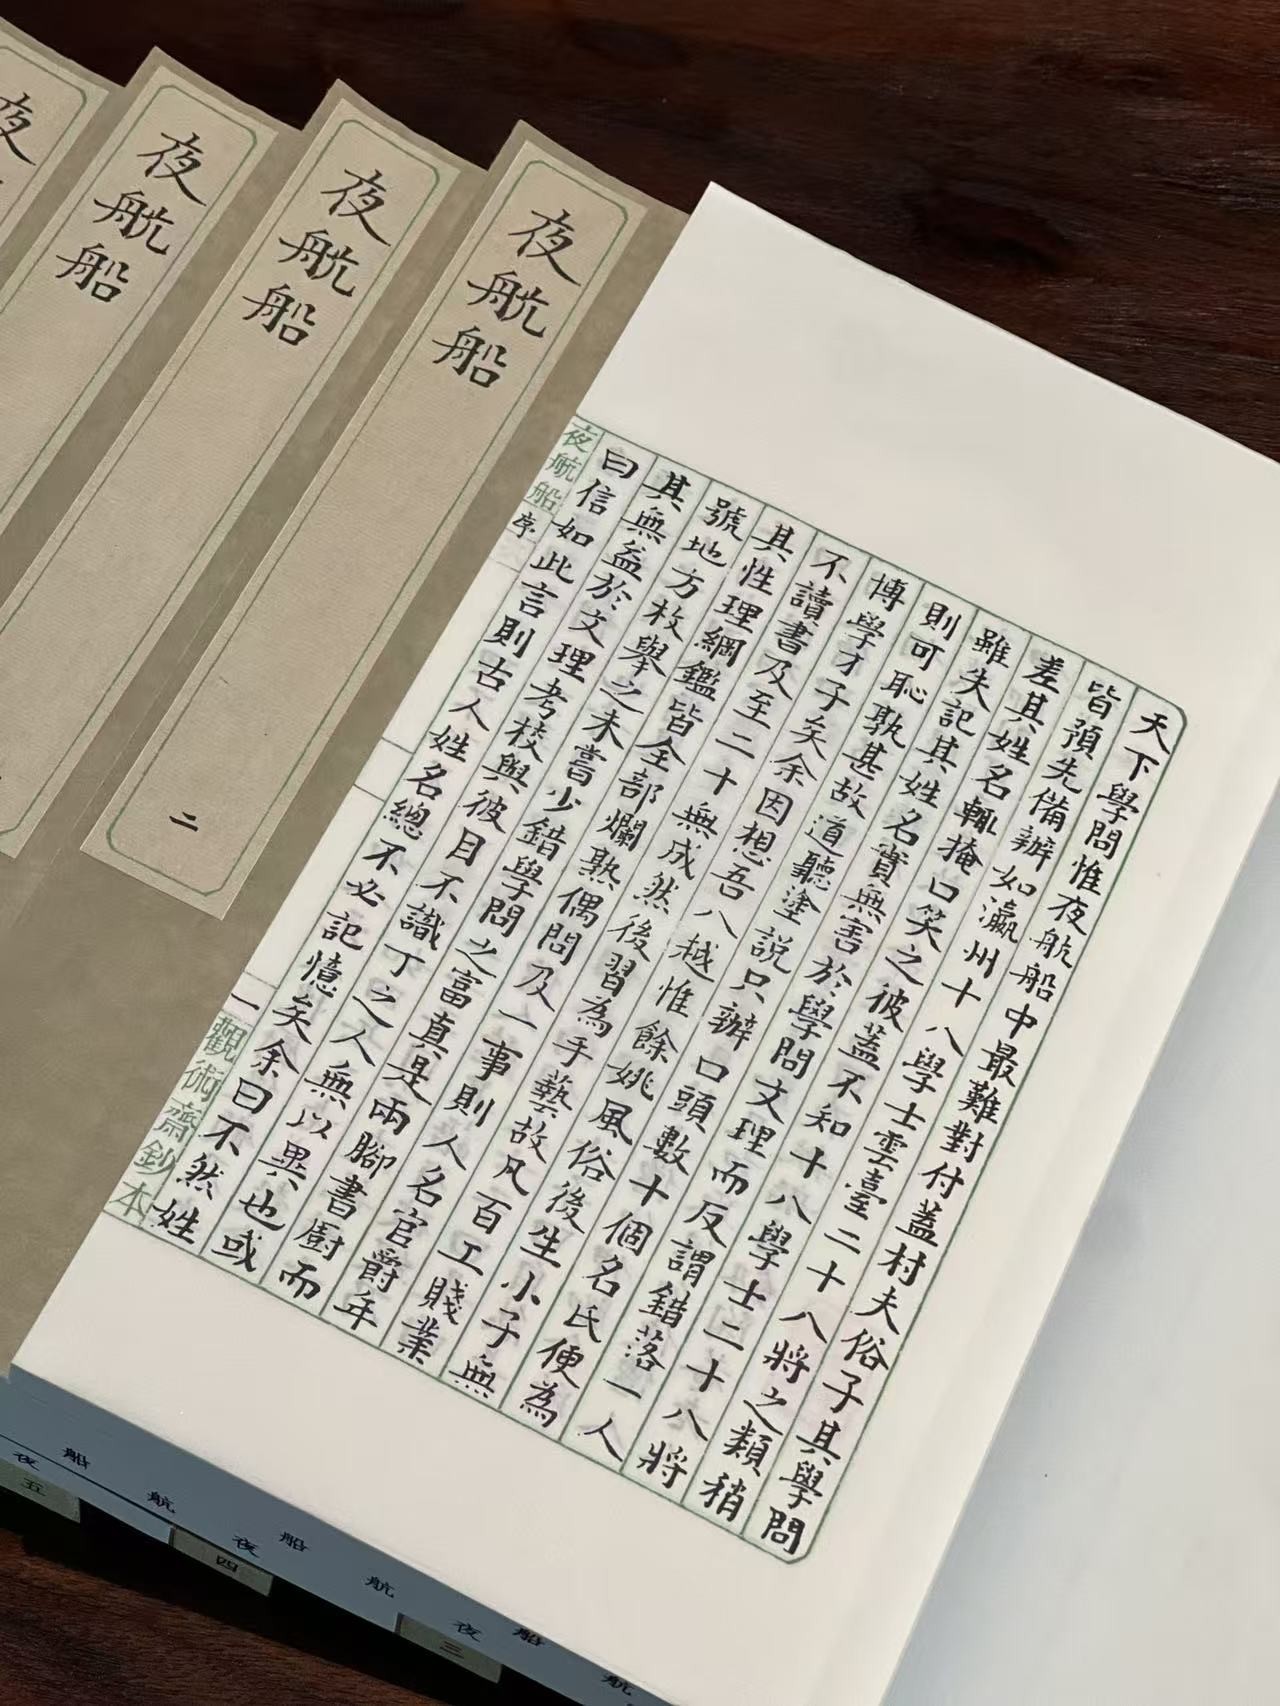 天下學問惟夜航船中最難對付蓋村夫俗子其學問
皆預先備辦如瀛州十八學士雲臺二十八將之類稍
差其姓名輒掩口笑之彼蓋不知十八學士二十八將
雖失記其姓名實無害於學問文理而反謂錯落一人
則可恥孰甚故道聽塗說只辦口頭數十個名氏便為
博學才子矣余因想吾八越惟餘姚風俗後生小子無
不讀書及至二十無成然後習為手藝故凡百工賤業
其性理綱鑑皆全部爛熟偶問及一事則人名官爵年
號地方枚舉之未嘗少錯學問之富真是兩腳書廚而
其無益於文理考校與彼目不識丁之人無以異也或
曰信如此言則古人姓名總不必記憶矣余曰不然姓
夜航船 序
一
觀術齋鈔本
夜航船
夜航船
二
夜航船
夜
船
夜
五
航
船
夜
四
航
船
夜
三
航